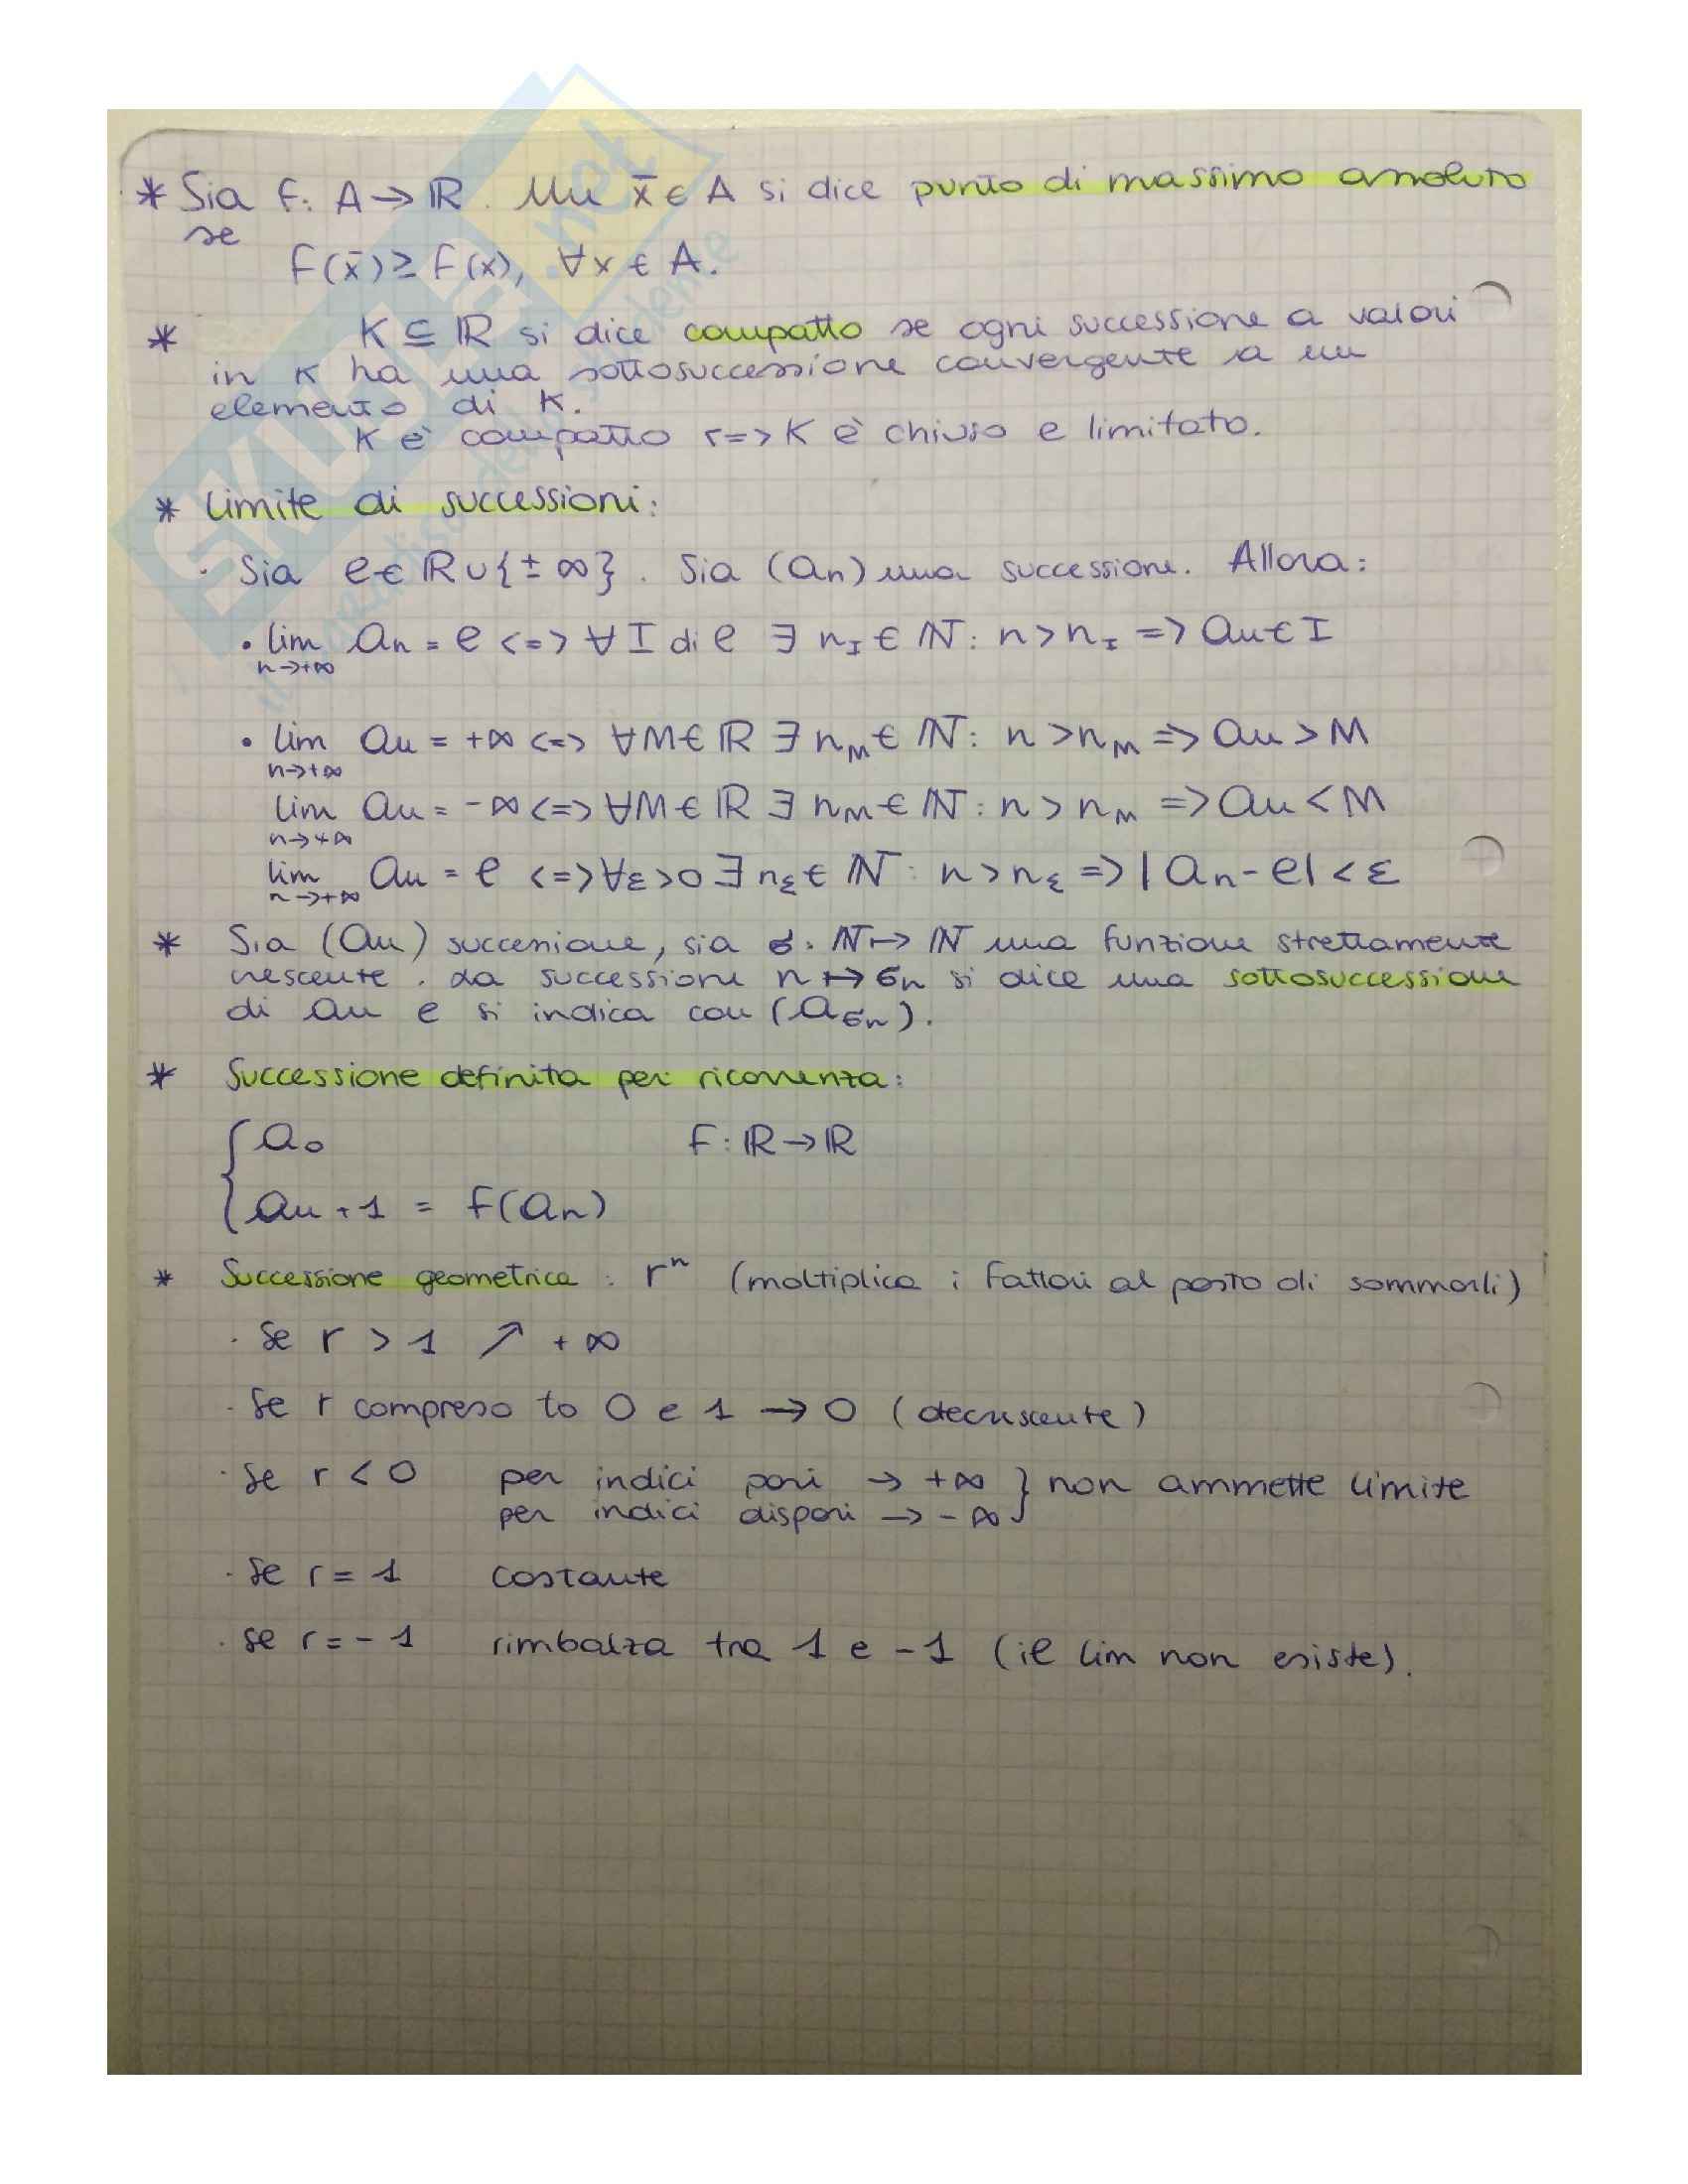 * Sia f: A → ℝ. Un x̄ ∈ A si dice punto di massimo assoluto
se
f(x̄) ≥ f(x), ∀x ∈ A.
* K ⊆ ℝ si dice compatto se ogni successione a valori
in K ha una sottosuccessione convergente a un
elemento di K.
K è compatto <=> K è chiuso e limitato.
* Limite di successioni:
· Sia ℓ ∈ ℝ ∪ {± ∞}. Sia (an) una successione. Allora:
• lim an = ℓ <=> ∀ I di ℓ ∃ n_I ∈ ℕ: n > n_I => an ∈ I
n→+∞
• lim an = +∞ <=> ∀M ∈ ℝ ∃ n_M ∈ ℕ: n > n_M => an > M
n→+∞
lim an = -∞ <=> ∀M ∈ ℝ ∃ n_M ∈ ℕ: n > n_M => an < M
n→+∞
lim an = ℓ <=> ∀ε > 0 ∃ n_ε ∈ ℕ: n > n_ε => |an - ℓ| < ε
n→+∞
* Sia (an) successione, sia σ: ℕ ↦ ℕ una funzione strettamente
crescente. La successione n ↦ σn si dice una sottosuccessione
di an e si indica con (a_σn).
* Successione definita per ricorrenza:
{ a₀ f: ℝ → ℝ
an+1 = f(an)
* Successione geometrica: rⁿ (moltiplica i fattori al posto di sommarli)
· Se r > 1 ↗ +∞
· Se r compreso to 0 e 1 → 0 (decrescente)
· Se r < 0 per indici pari → +∞ } non ammette limite
per indici dispari → -∞
· Se r = 1 costante
· Se r = -1 rimbalza tra 1 e -1 (il lim non esiste).